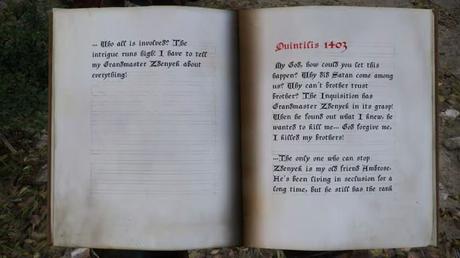 ... Who all is involved? The
intrigue runs high! I have to tell
my Grandmaster Zdenyek about
everything!
Quintilis 1403
My God, how could you let this
happen? Why did Satan come among
us? Why can't brother trust
brother? The Inquisition has
Grandmaster Zdenyek in its grasp!
When he found out what I knew, he
wanted to kill me... God forgive me,
I killed my brothers!
...The only one who can stop
Zdenyek is my old friend Ambrose.
He's been living in seclusion for a
long time, but he still has the rank